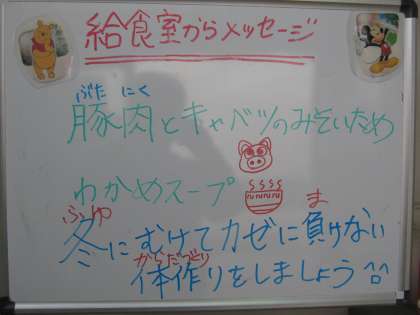 給食室からメッセージ
ぶた にく
豚肉とキャベツのみそいため
わかめスープ
ふゆ ま
冬にむけてカゼに負けない
からだづくり
体作りをしましょう^^